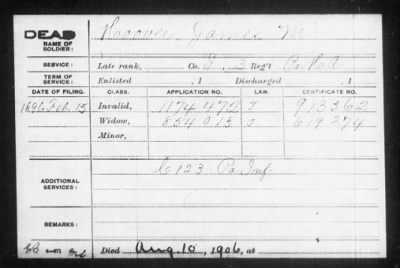 DEAD
NAME OF SOLDIER: Hoover, James M
SERVICE: Late rank, Co. I, 3 Reg't Pa. H A
TERM OF SERVICE: Enlisted , 1 Discharged , 1
DATE OF FILING. CLASS. APPLICATION NO. CERTIFICATE NO.
1896 Feb. 15 Invalid, 1174 472 J 913362
Widow, 854 013 J 619 274
Minor,
ADDITIONAL SERVICES: C 123 Pa Inf
REMARKS:
Died Aug. 10, 1906, at